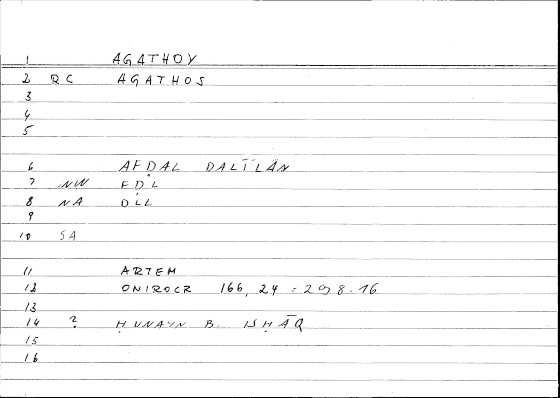 1 AGATHOY
2 QC AGATHOS
3
4
5
6 AFḌAL DALĪLĀN
7 NW FḌL
8 NA DLL
9
10 SA
11 ARTEM
12 ONIROCR 166, 24 = 298.16
13
14 ? ḤUNAYN B. ISḤĀQ
15
16